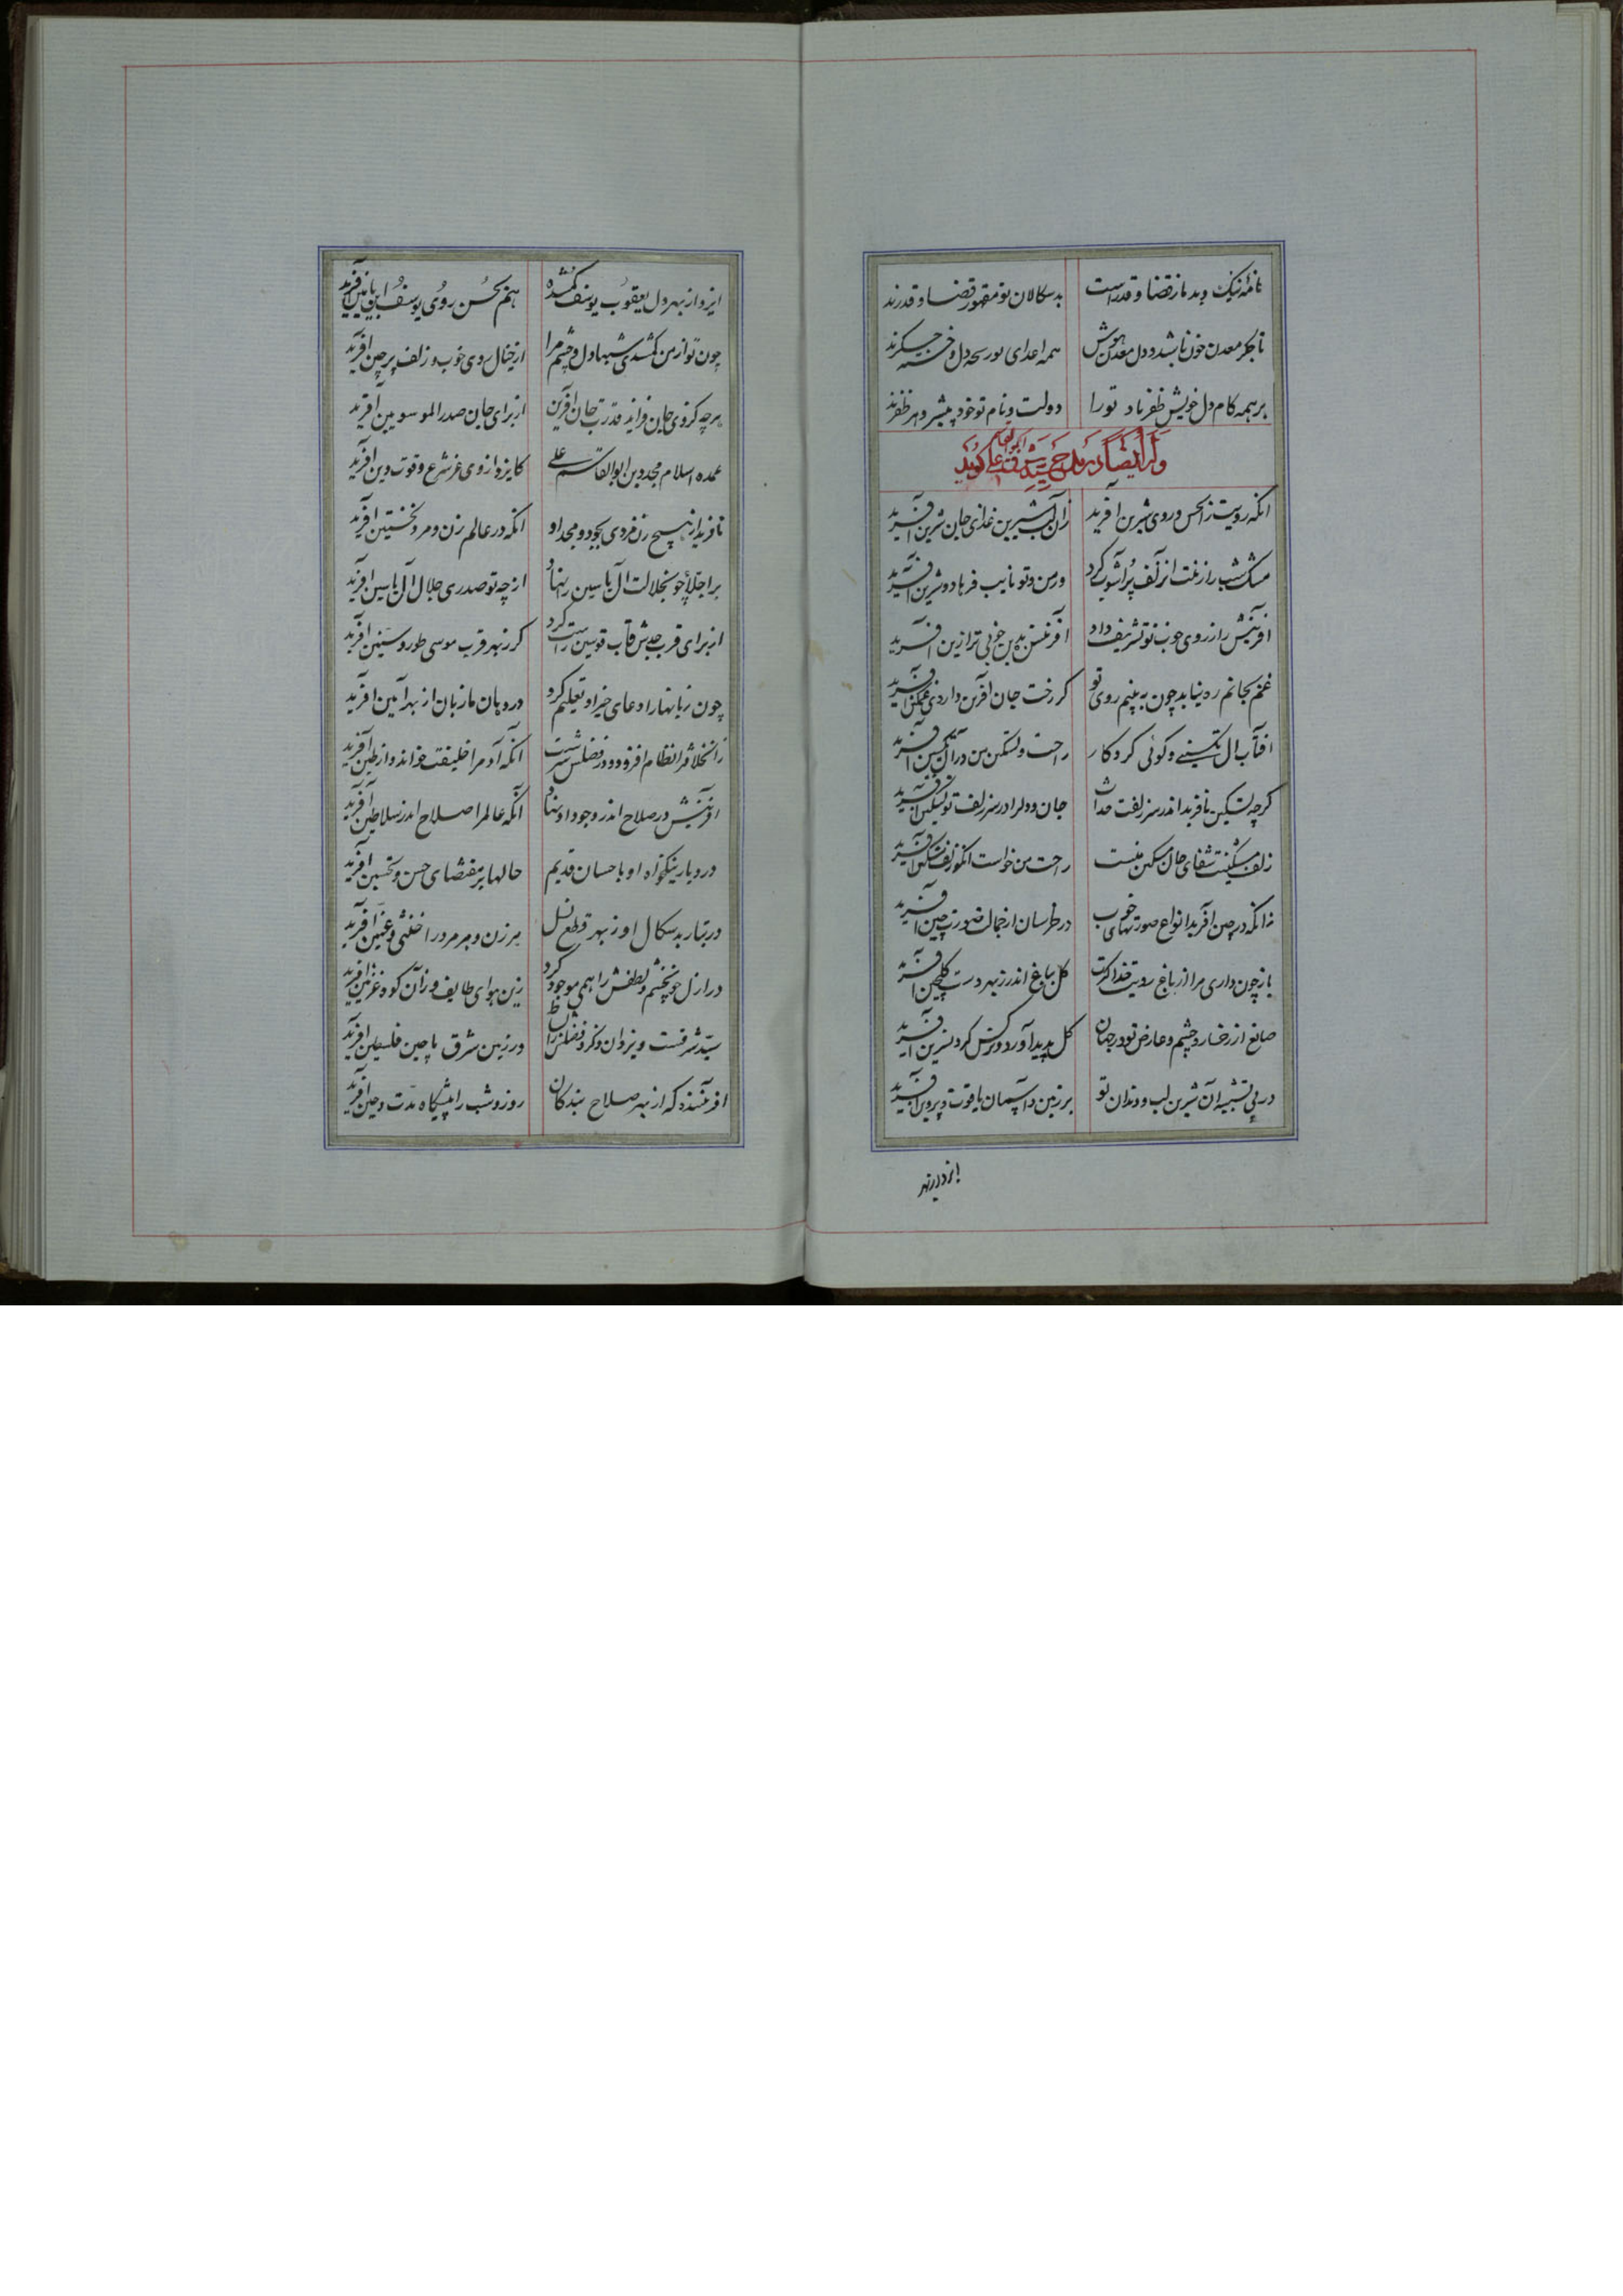 تا همه نیک و بد ما ز قضا و قدر است بدسکالان تو مقهور قضا و قدرند
تا جگر معدن خون باشد و دل معدن هوش همه اعدای تو دل و خسته جگرند
بر همه کام دل خویش ظفر باد تو را دولت و نام تو خود پیشرو هر ظفرند
وله ایضا در مدح سید شرف ابو القاسم علی گوید
انکه رویت ز انحس و روی شیرین آفرید زان لب شیرین غذای جان شیرین آفرید
مشک شب را زینت از زلف پرآشوب کرد ور من و تو نایب فرهاد و شیرین آفرید
افرینش را ز روی خوب تو تشریف داد افرینش بدین خوبی تر ازین آفرید
غم بجانم ره نیابد چون به بینم روی تو کر رخت جان افرین داردی غمکین آفرید
افتاب ال یاسینی و کوئی کردکار راحت و تسکین من در آل یاسین آفرید
کرچه تسکین نافرید اندر سر زلفت خدا جان و دلرا در سر زلف تو تسکین آفرید
زلف مشکینت شفای جان مسکین منست راحت من خواست انکو زلف مشکین آفرید
زانکه در چین آفرید انواع صورتهای خوب در خراسان از جمالت صورت چین آفرید
باز چون داری مرا از باغ رویت خدا کل بباغ اندر ز بهر دست کلچین آفرید
صانع از رخسار و چشم و عارض تو در جهان کل پدید آورد و نرکس کرد و نسرین آفرید
در پی تشبیه آن شیرین لب و دندان تو بر زمین و آسمان یاقوت و پروین آفرید
ایزد از بهر
ایزد از بهر دل یعقوب یوسف کمشده هم بحسن روی یوسف ابن یامین آفرید
چون تو از من کمشدی شبها دل و چشم مرا از خیال روی خوب و زلف پرچین آفرید
هرچه کز وی جان فزاید قدرت جان افرین از برای جان صدر الموسویین آفرید
عمده اسلام مجد دین ابو القاسم علی کایزد از وی عز شرع و قوت دین آفرید
نافرید از هیچ زن فردی بجود و مجد او انکه در عالم زن و مرد نخستین آفرید
بر اجلا چون جلالت ال یاسین را نهاد از چه تو صدری جلال ال یاسین آفرید
از برای قرب جدش قاب قوسین راست کرد کر ز بهر قرب موسی طور و سینین آفرید
چون زبانها را دعای خیر او تعلیم کرد در دهان ما زبان از بهر آمین آفرید
زانخلافرا نظام افزود و در فضلش سرشت آنکه آدمرا خلیفت خواند و از طین آفرید
افرینش در صلاح اندر وجود او نهاد آنکه عالمرا صلاح اندر سلاطین آفرید
در دیار نیکخواه او با احسان قدیم حالها بر مقتضای حسن و تحسین آفرید
در تبار بدسکال او ز بهر قطع نسل هر زن و هر مرد را خنثی و عنین آفرید
در ازل چون خشم و لطفش را همی موجود کرد زین هوای طایف و زان کوه غزنین آفرید
سید شرقست و یزدان ذکر و فضلش را بساط در زمین شرق تا چین فلسطین آفرید
افریننده که از بهر صلاح بندکان روز و شب را پیشکاه مدت و حین آفرید